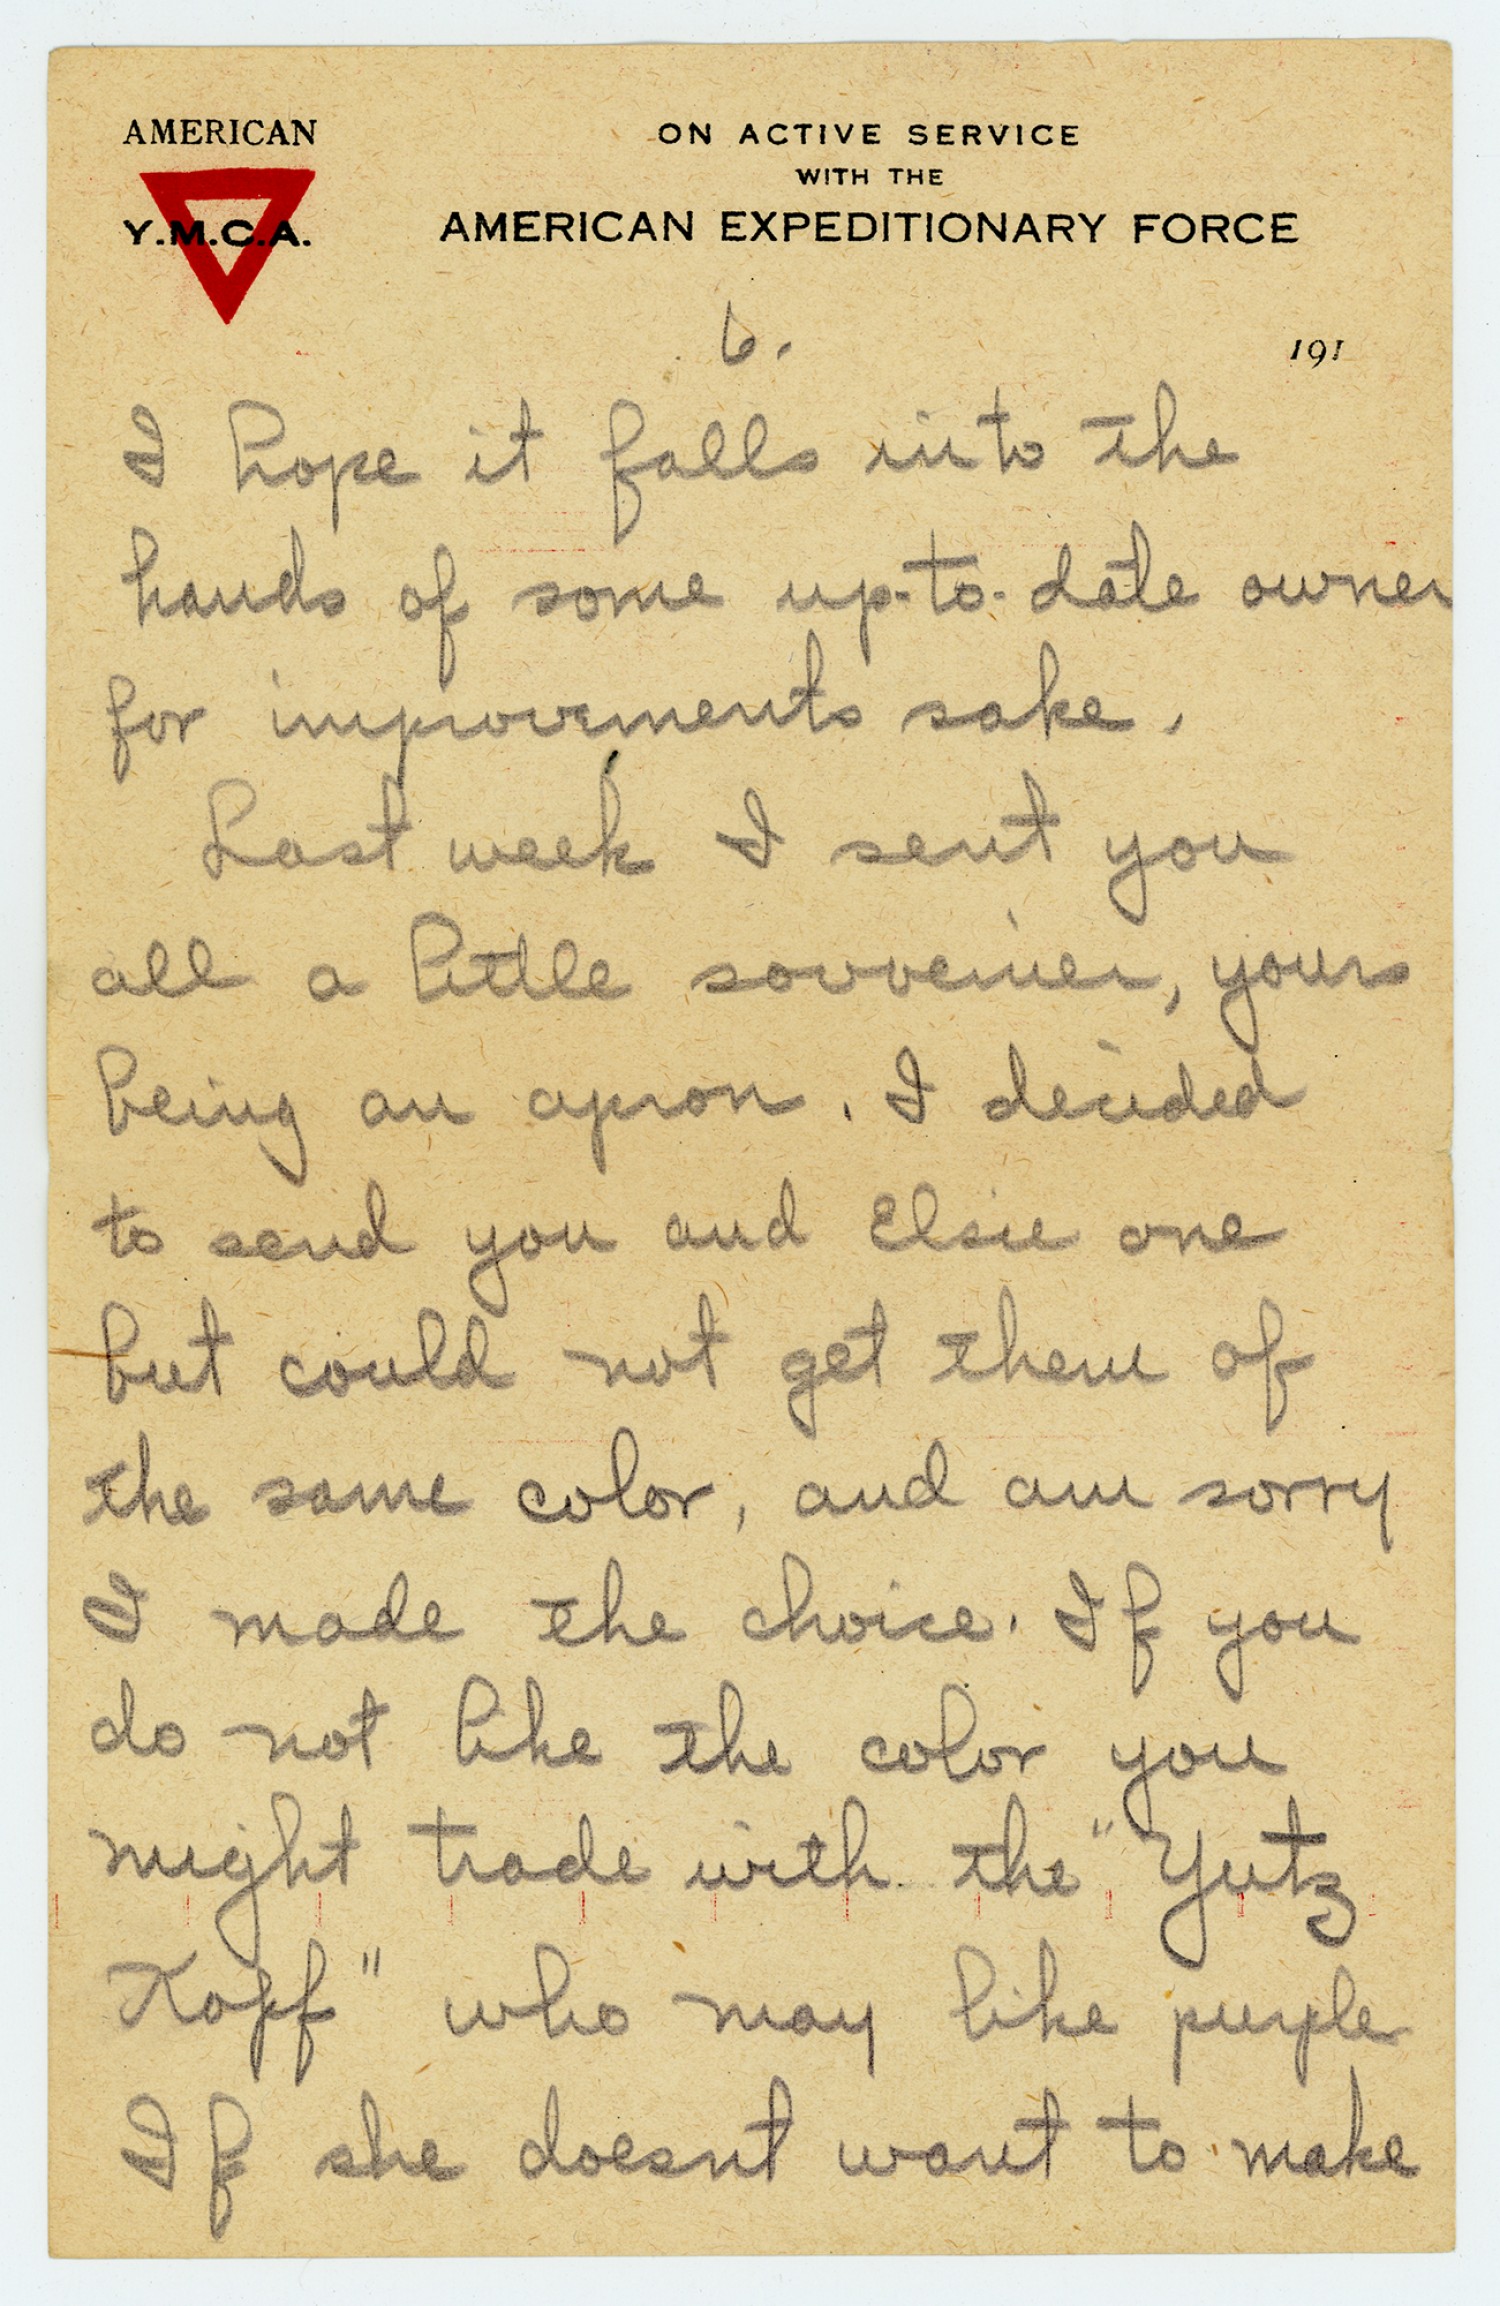 AMERICAN
Y.M.C.A.
ON ACTIVE SERVICE
WITH THE
AMERICAN EXPEDITIONARY FORCE
6.
191
I hope it falls into the
hands of some up-to-date owner
for improvements sake.
Last week I sent you
all a little souvenier, yours
being an apron. I decided
to send you and Elsie one
but could not get them of
the same color, and am sorry
I made the choice. If you
do not like the color you
might trade with the "Yutz
Kopf" who may like purple
If she doesnt want to make